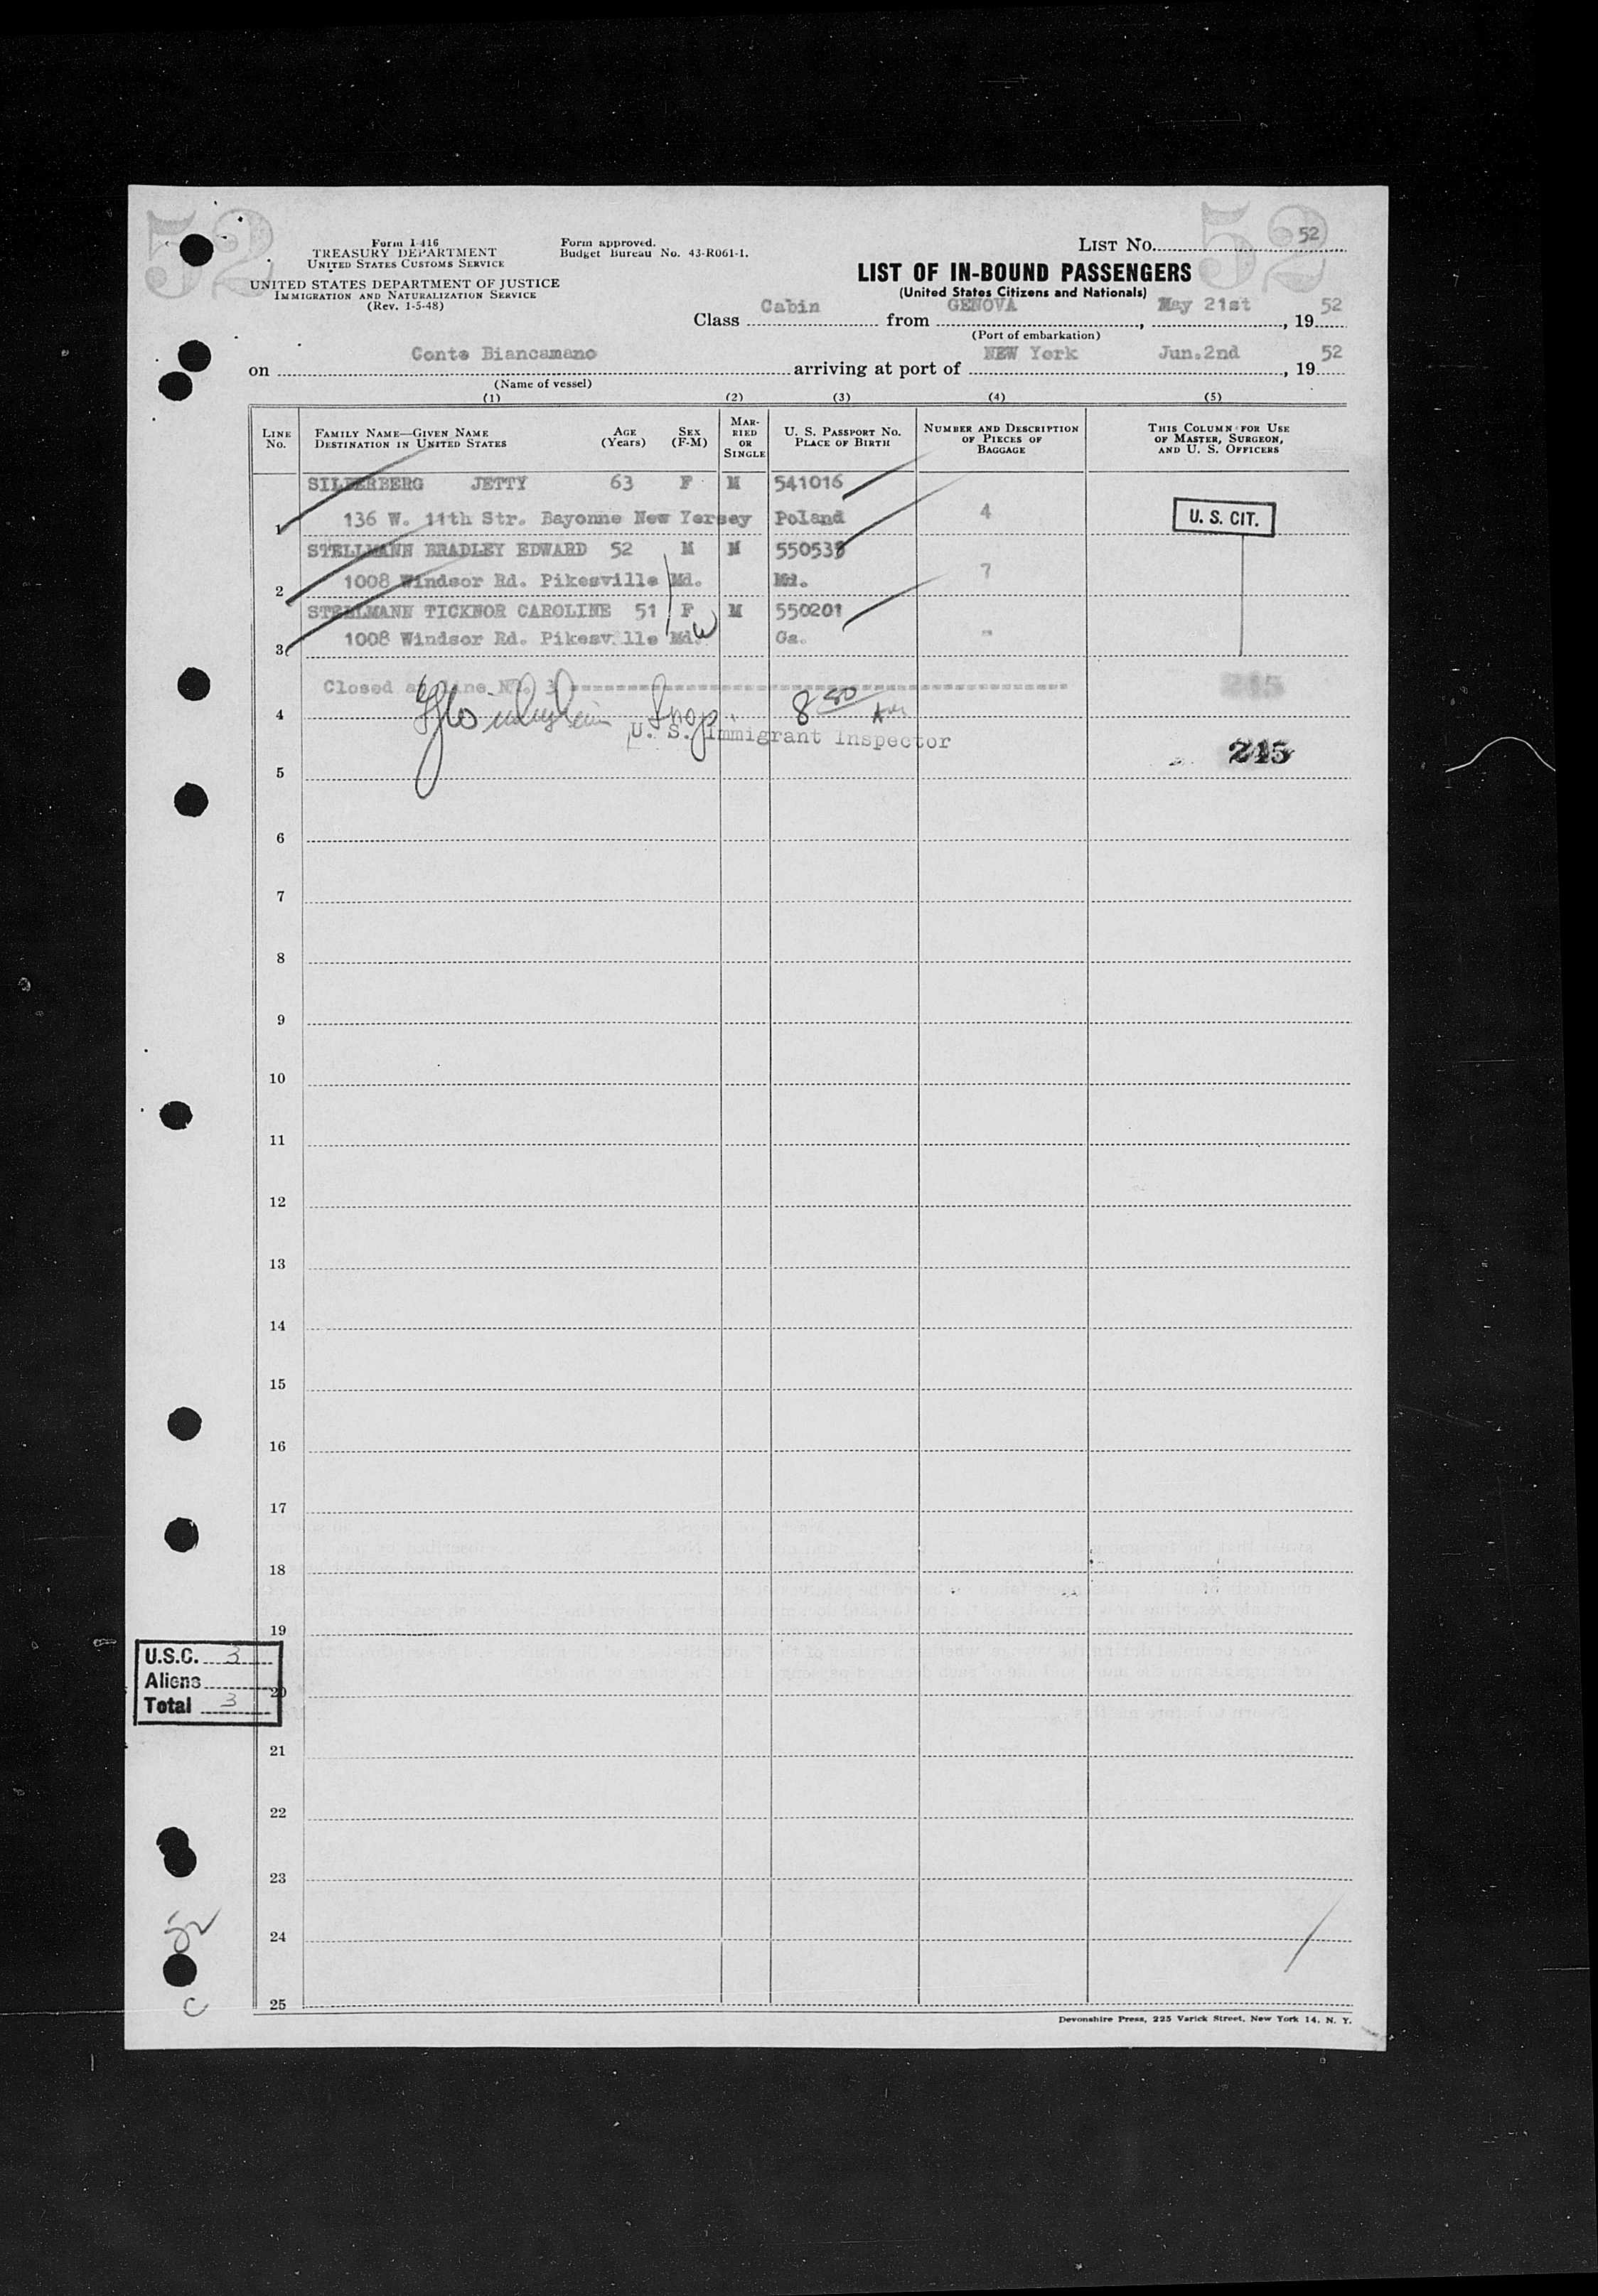 52 52
Form I-416
TREASURY DEPARTMENT
UNITED STATES CUSTOMS SERVICE
UNITED STATES DEPARTMENT OF JUSTICE
IMMIGRATION AND NATURALIZATION SERVICE
(Rev. 1-5-48)
Form approved.
Budget Bureau No. 43-R061-1.
LIST No. 52
LIST OF IN-BOUND PASSENGERS
(United States Citizens and Nationals)
Class Cabin from GENOVA, May 21st, 19 52
(Port of embarkation)
on Conte Biancamano arriving at port of NEW York Jun.2nd, 19 52
(Name of vessel)
(1) (2) (3) (4) (5)
LINE No. FAMILY NAME—GIVEN NAME DESTINATION IN UNITED STATES AGE (Years) SEX (F-M) MARRIED OR SINGLE U. S. PASSPORT No. PLACE OF BIRTH NUMBER AND DESCRIPTION OF PIECES OF BAGGAGE THIS COLUMN FOR USE OF MASTER, SURGEON, AND U. S. OFFICERS
SILBERBERG JETTY 63 F M 541016
1 136 W. 11th Str. Bayonne New Yersey Poland 4 U. S. CIT.
STELLMANN BRADLEY EDWARD 52 M M 550538
2 1008 Windsor Rd. Pikesville Md. Md. 7
STELLMANN TICKNOR CAROLINE 51 F M 550201
3 1008 Windsor Rd. Pikesville Md. Ga. "
Closed at line Nr. 3 245
4 Insp. 8 50 AM
U. S. Immigrant Inspector
5 245
6
7
8
9
10
11
12
13
14
15
16
17
18
19
U.S.C. 3
Aliens
Total 3
20
21
22
23
24
25
52
C
Devonshire Press, 225 Varick Street, New York 14, N. Y.